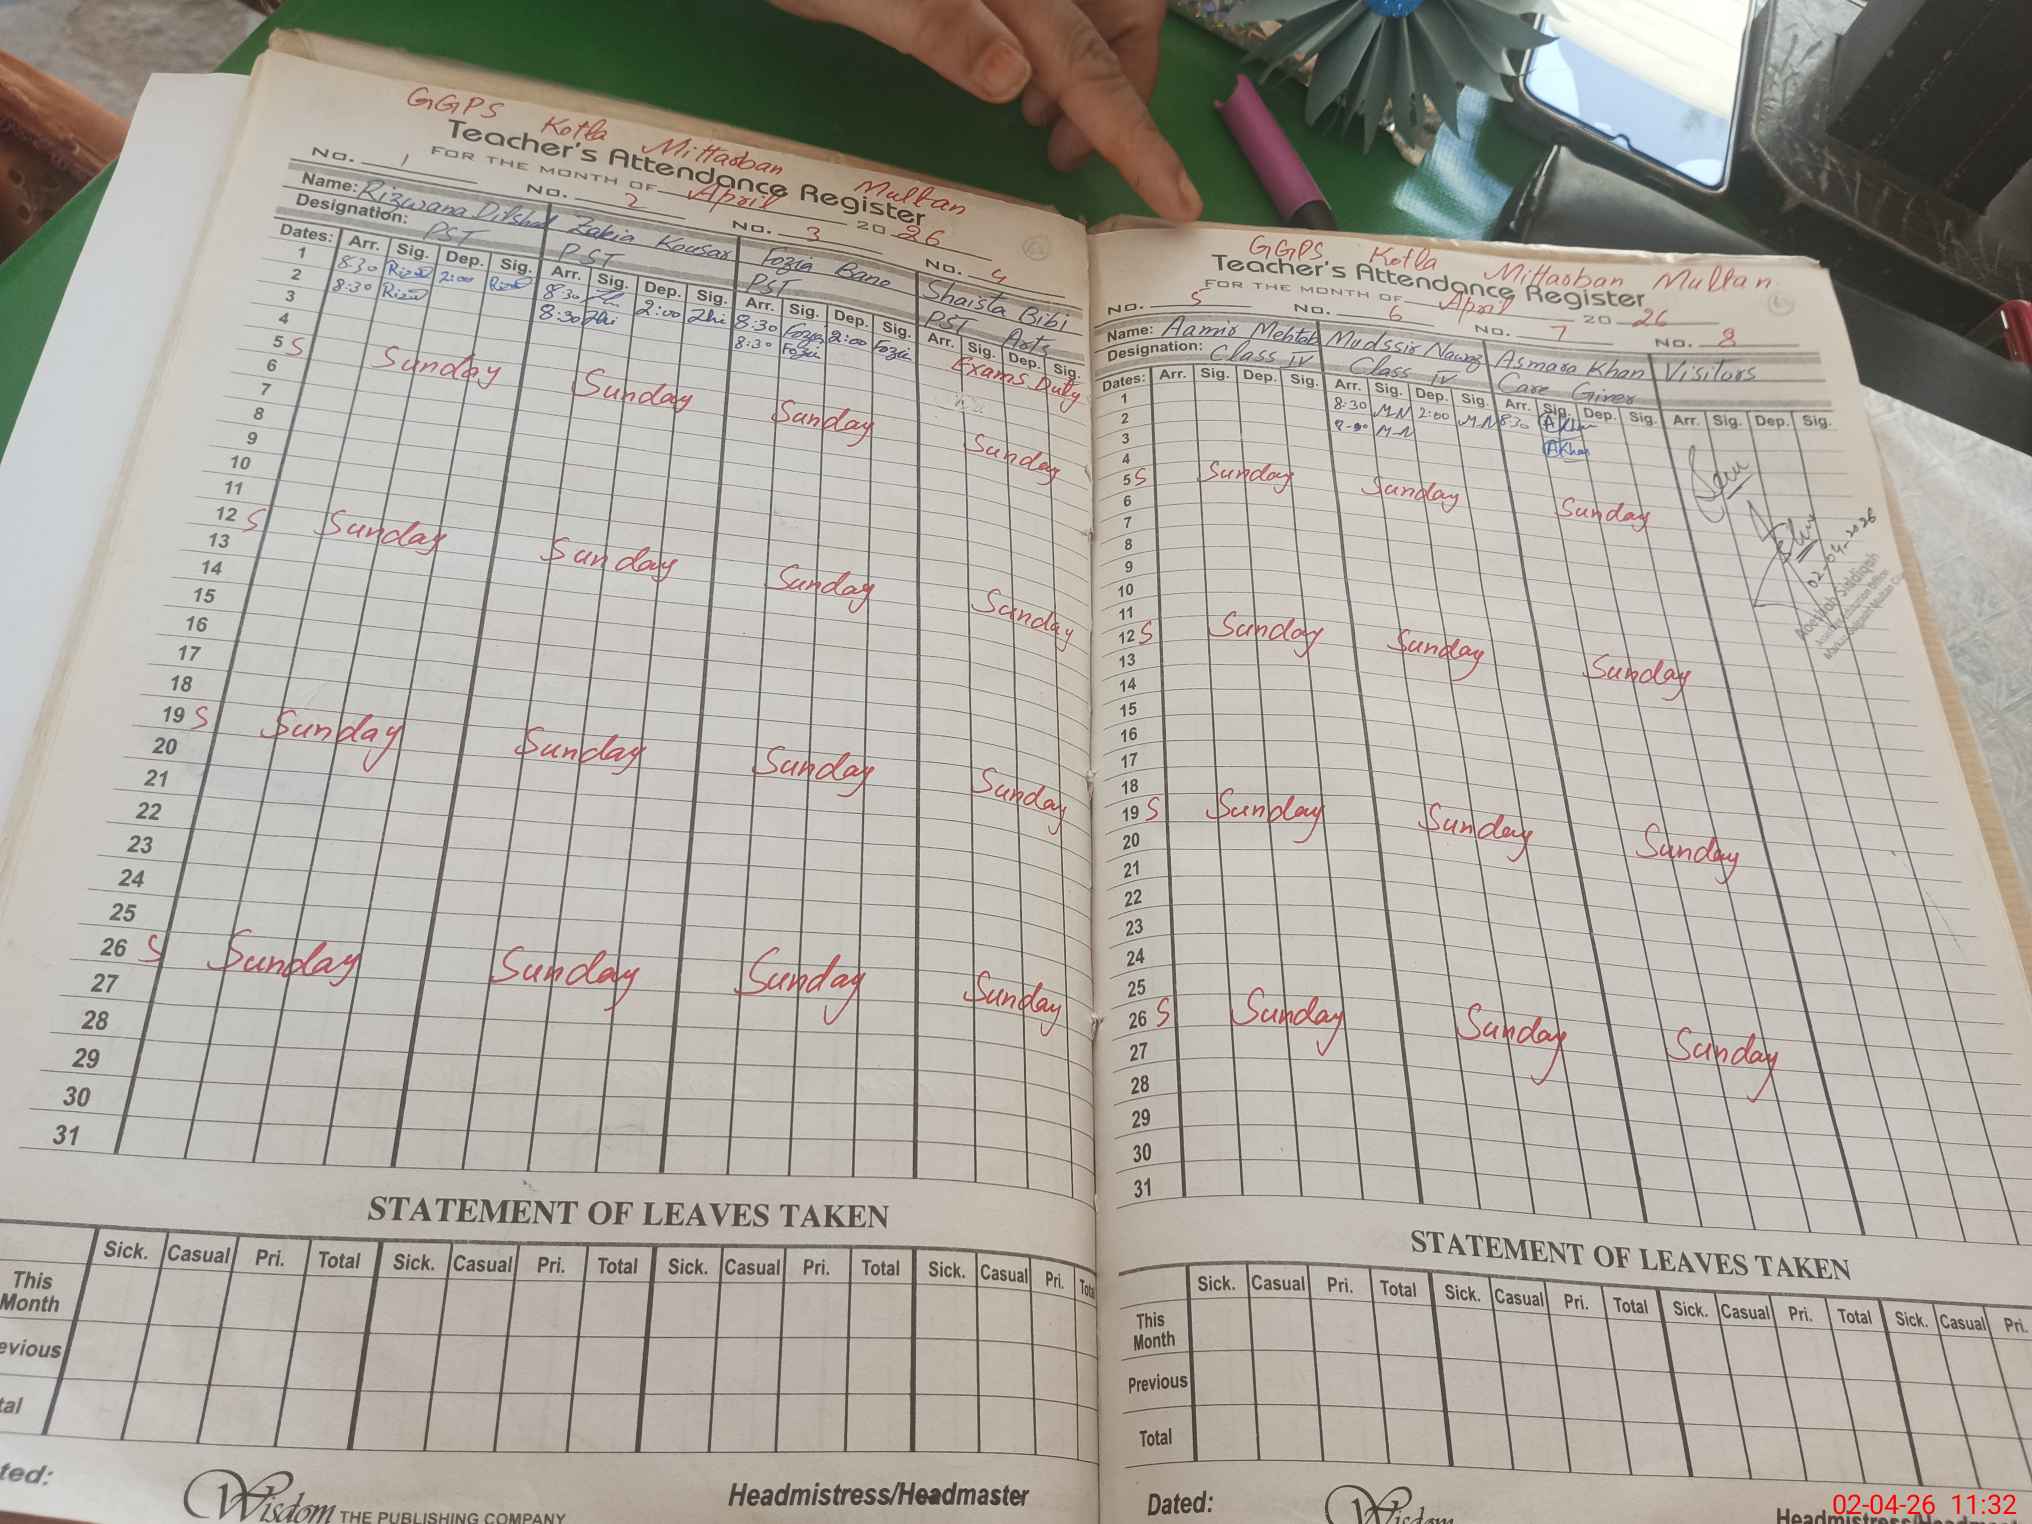 GGPS Kotla Mittaoban Multan
Teacher's Attendance Register
FOR THE MONTH OF April 2026
No. 1 No. 2 No. 3 No. 4
Name: Rizwana Dilshad Zakia Kousar Fozia Bano Shaista Bibi
Designation: PST PST PST PST Arts
Dates: Arr. Sig. Dep. Sig. Arr. Sig. Dep. Sig. Arr. Sig. Dep. Sig. Arr. Sig. Dep. Sig.
1 8:30 2:00 8:30 2:00 Zhi 8:30 Fozia 2:00 Fozia Exams Duty
2 8:30 8:30 Zhi 8:30 Fozia
3
4
5 S Sunday Sunday Sunday Sunday
6
7
8
9
10
11
12 S Sunday Sunday Sunday Sunday
13
14
15
16
17
18
19 S Sunday Sunday Sunday Sunday
20
21
22
23
24
25
26 S Sunday Sunday Sunday Sunday
27
28
29
30
31
STATEMENT OF LEAVES TAKEN
Sick. Casual Pri. Total Sick. Casual Pri. Total Sick. Casual Pri. Total Sick. Casual Pri. Tota
This Month
evious
tal
ted:
Headmistress/Headmaster
Wisdom THE PUBLISHING COMPANY
GGPS Kotla Mittaoban Multan
Teacher's Attendance Register
FOR THE MONTH OF April 2026
No. 5 No. 6 No. 7 No. 8
Name: Aamir Mehtab Mudssir Nawaz Asmara Khan Visitors
Designation: Class IV Class IV Care Giver
Dates: Arr. Sig. Dep. Sig. Arr. Sig. Dep. Sig. Arr. Sig. Dep. Sig. Arr. Sig. Dep. Sig.
1 8:30 M.N 2:00 M.N 8:30 AKhan
2 M.N AKhan
3
4
5 S Sunday Sunday Sunday
6
7
8
9
10
11
12 S Sunday Sunday Sunday
13
14
15
16
17
18
19 S Sunday Sunday Sunday
20
21
22
23
24
25
26 S Sunday Sunday Sunday
27
28
29
30
31
02-04-2026
Siddiqah
STATEMENT OF LEAVES TAKEN
Sick. Casual Pri. Total Sick. Casual Pri. Total Sick. Casual Pri. Total Sick. Casual Pri.
This Month
Previous
Total
Dated:
Wisdom
02-04-26 11:32